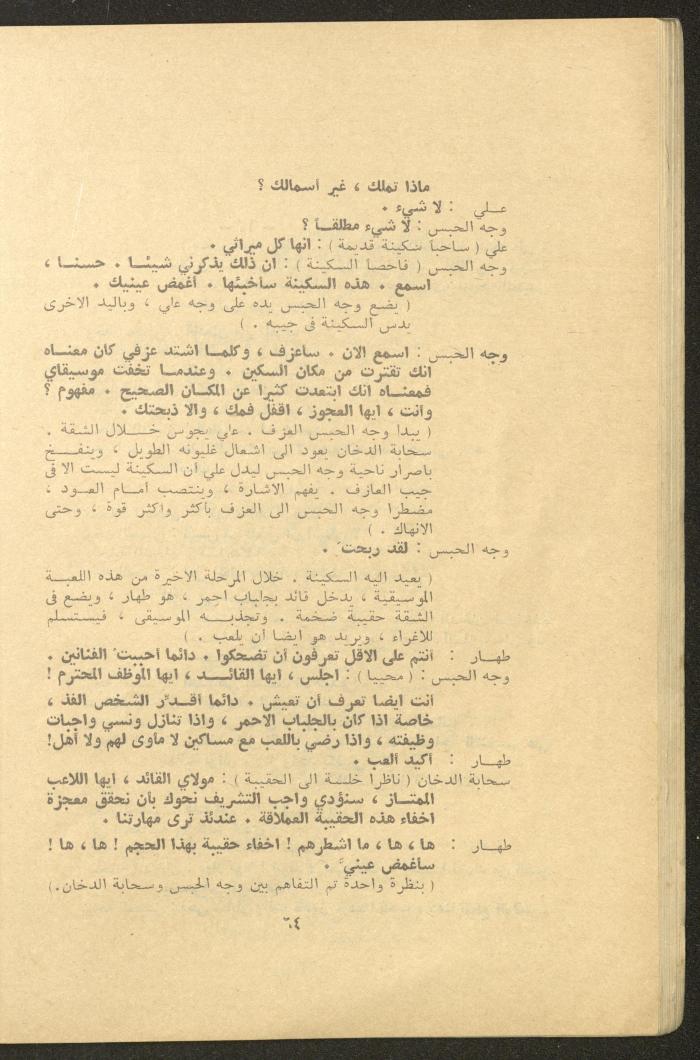 ماذا تملك ، غير أسمالك ؟
عـلـي : لا شيء .
وجه الحبس : لا شيء مطلقـاً ؟
علي ( ساحباً سكينة قديمة ) : انها كل ميراثي .
وجه الحبس ( فاحصا السكينة ) : ان ذلك يذكرني شيئـا . حسنـا ،
اسمع . هذه السكينة سأخبئها . أغمض عينيك .
( يضع وجه الحبس يده على وجه علي ، وباليد الاخرى
يدس السكينة في جيبه . )
وجه الحبس : اسمع الان . سأعزف ، وكلمـا اشتد عزفي كان معنـاه
انك تقترت من مكان السكين . وعندمـا تخفت موسيقاي
فمعنـاه انك ابتعدت كثيرا عن المكـان الصحيح . مفهوم ؟
وأنت ، ايها العجوز ، اقفل فمك ، والا ذبحتك .
( يبدا وجه الحبس العزف . علي يجوس خـلال الشقة .
سحابة الدخان يعود الى اشعال غليونه الطويل ، وينفـخ
باصرار ناحية وجه الحبس ليدل علي أن السكينة ليست الا في
جيب العازف . يفهم الاشارة ، وينتصب أمـام العـود ،
مضطرا وجه الحبس الى العزف بأكثر واكثر قوة ، وحتى
الانهاك . )
وجه الحبس : لقد ربحتَ .
( يعيد اليه السكينة . خلال المرحلة الاخيرة من هذه اللعبـة
الموسيقية ، يدخل قائد بجلباب احمر ، هو طهار ، ويضع في
الشقة حقيبة ضخمة . وتجذبـه الموسيقى ، فيستسلم
للاغراء ، ويريد هو ايضا أن يلعب . )
طهـار : أنتم على الاقل تعرفون أن تضحكوا . دائما أحببت الفنانين .
وجه الحبس : ( محييا ) : اجلس ، ايها القائـد ، ايها الموظف المحترم !
أنت ايضا تعرف أن تعيش . دائما أقـدّر الشخص الفذ ،
خاصة اذا كان بالجلباب الاحمر ، واذا تنازل ونسي واجبات
وظيفته ، واذا رضي باللعب مع مساكين لا مأوى لهم ولا أهل!
طهـار : أكيد ألعب .
سحابة الدخان ( ناظرا خلسة الى الحقيبة ) : مولاي القائد ، ايها اللاعب
الممتـاز ، سنؤدي واجب التشريف نحوك بأن نحقق معجزة
اخفاء هذه الحقيبة العملاقة . عندئذ ترى مهارتنا .
طهـار : ها ، ها ، ما اشطرهم ! اخفاء حقيبة بهذا الحجم ! ها ، ها !
سأغمض عينيّ .
( بنظرة واحدة تم التفاهم بين وجه الحبس وسحابة الدخان.)